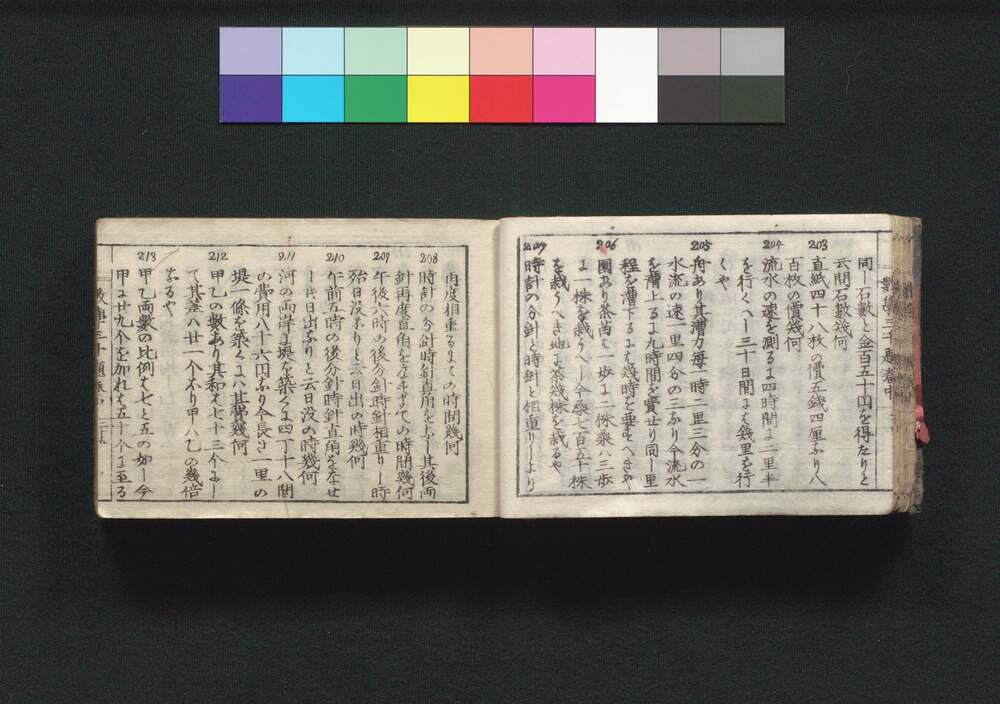 同一石數と金百五十円を得たりと
云問石數幾何
203
直紙四十八枚の價五錢四厘なり八
百枚の價幾何
204
流水の速を測るに四時間に二里半
を行くへし三十日間に幾里を行
くや
205
舟あり其漕力毎一時二里三分の一
水流の速一里四分の三なり今流水
を漕上るに九時間を費せり同一里
程を漕下るには幾時を要すへきや
206
園あり茶苗は一歩に二株桒八三歩
に一株を栽うへし今桒七百五十株
を栽うへき地に茶幾株を栽るや
207
時計の分針と時針と相重りしより
再度相重るまての時間幾何
208
時計の分針時針直角をなし其後両
針再度直角をなすまての時間幾何
209
午後六時の後分針時針相重りし時
殆日没なりと云日出の時幾何
210
午前五時の後分針時針直角をなせ
し時日出なりと云日没の時幾何
211
河の両岸に堤を築くに四丁十八間
の費用八十六円なり今長さ一里の
堤一條を築くには其費幾何
212
甲乙の數あり其和は七十三个にし
て其差八廿一个なり甲八乙の幾倍
なるや
213
甲乙両數の比例は七と五の如し今
甲に廿九个を加れは五十个に至る